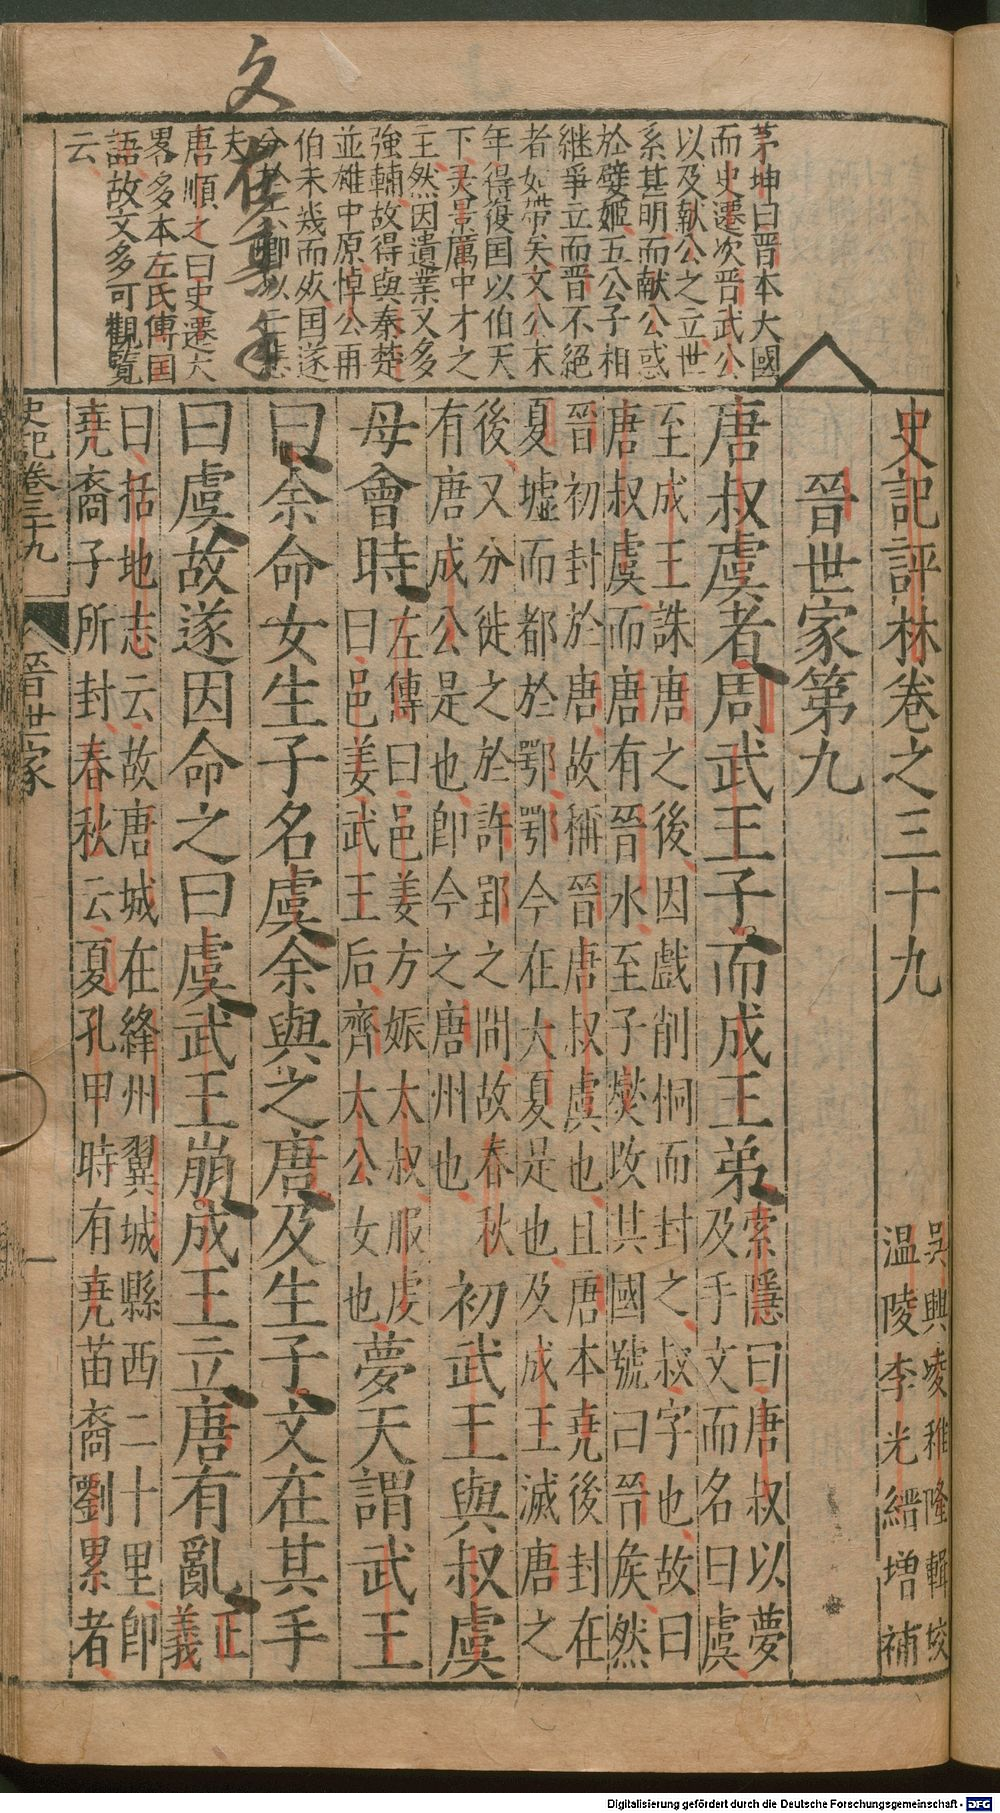 史記評林卷之三十九
吳興凌稚隆輯校
溫陵李光縉增補
晉世家第九
唐叔虞者周武王子而成王弟
索隱曰唐叔以夢
及手文而名曰虞
至成王誅唐之後因戲削桐而封之叔字也故曰
唐叔虞而唐有晉水至子燮改其國號曰晉侯然
晉初封於唐故稱晉唐叔虞也且唐本堯後封在
夏墟而都於鄂鄂今在大夏是也及成王滅唐之
後又分徙之於許郢之間故春秋
有唐成公是也即今之唐州也
初武王與叔虞
母會時
左傳曰邑姜方娠太叔服虔
曰邑姜武王后齊太公女也
夢天謂武王
曰余命女生子名虞余與之唐及生子文在其手
曰虞故遂因命之曰虞武王崩成王立唐有亂
正
義
曰括地志云故唐城在絳州翼城縣西二十里即
堯裔子所封春秋云夏孔甲時有堯苗裔劉累者
茅坤曰晉本大國
而史遷次晉武公
以及献公之立世
系甚明而献公惑
於嬖姬五公子相
継爭立而晉不絕
者如帶矣文公末
年得復国以伯天
下灵景厲中才之
主然因遺業又多
強輔故得與秦楚
並雄中原悼公再
伯未幾而歿国遂
分於六卿以亡悲
夫
唐順之曰史遷大
畧多本左氏傳国
語故文多可觀覽
云
文在其手
史記卷三十九
晉世家
一
Digitalisierung gefördert durch die Deutsche Forschungsgemeinschaft - DFG